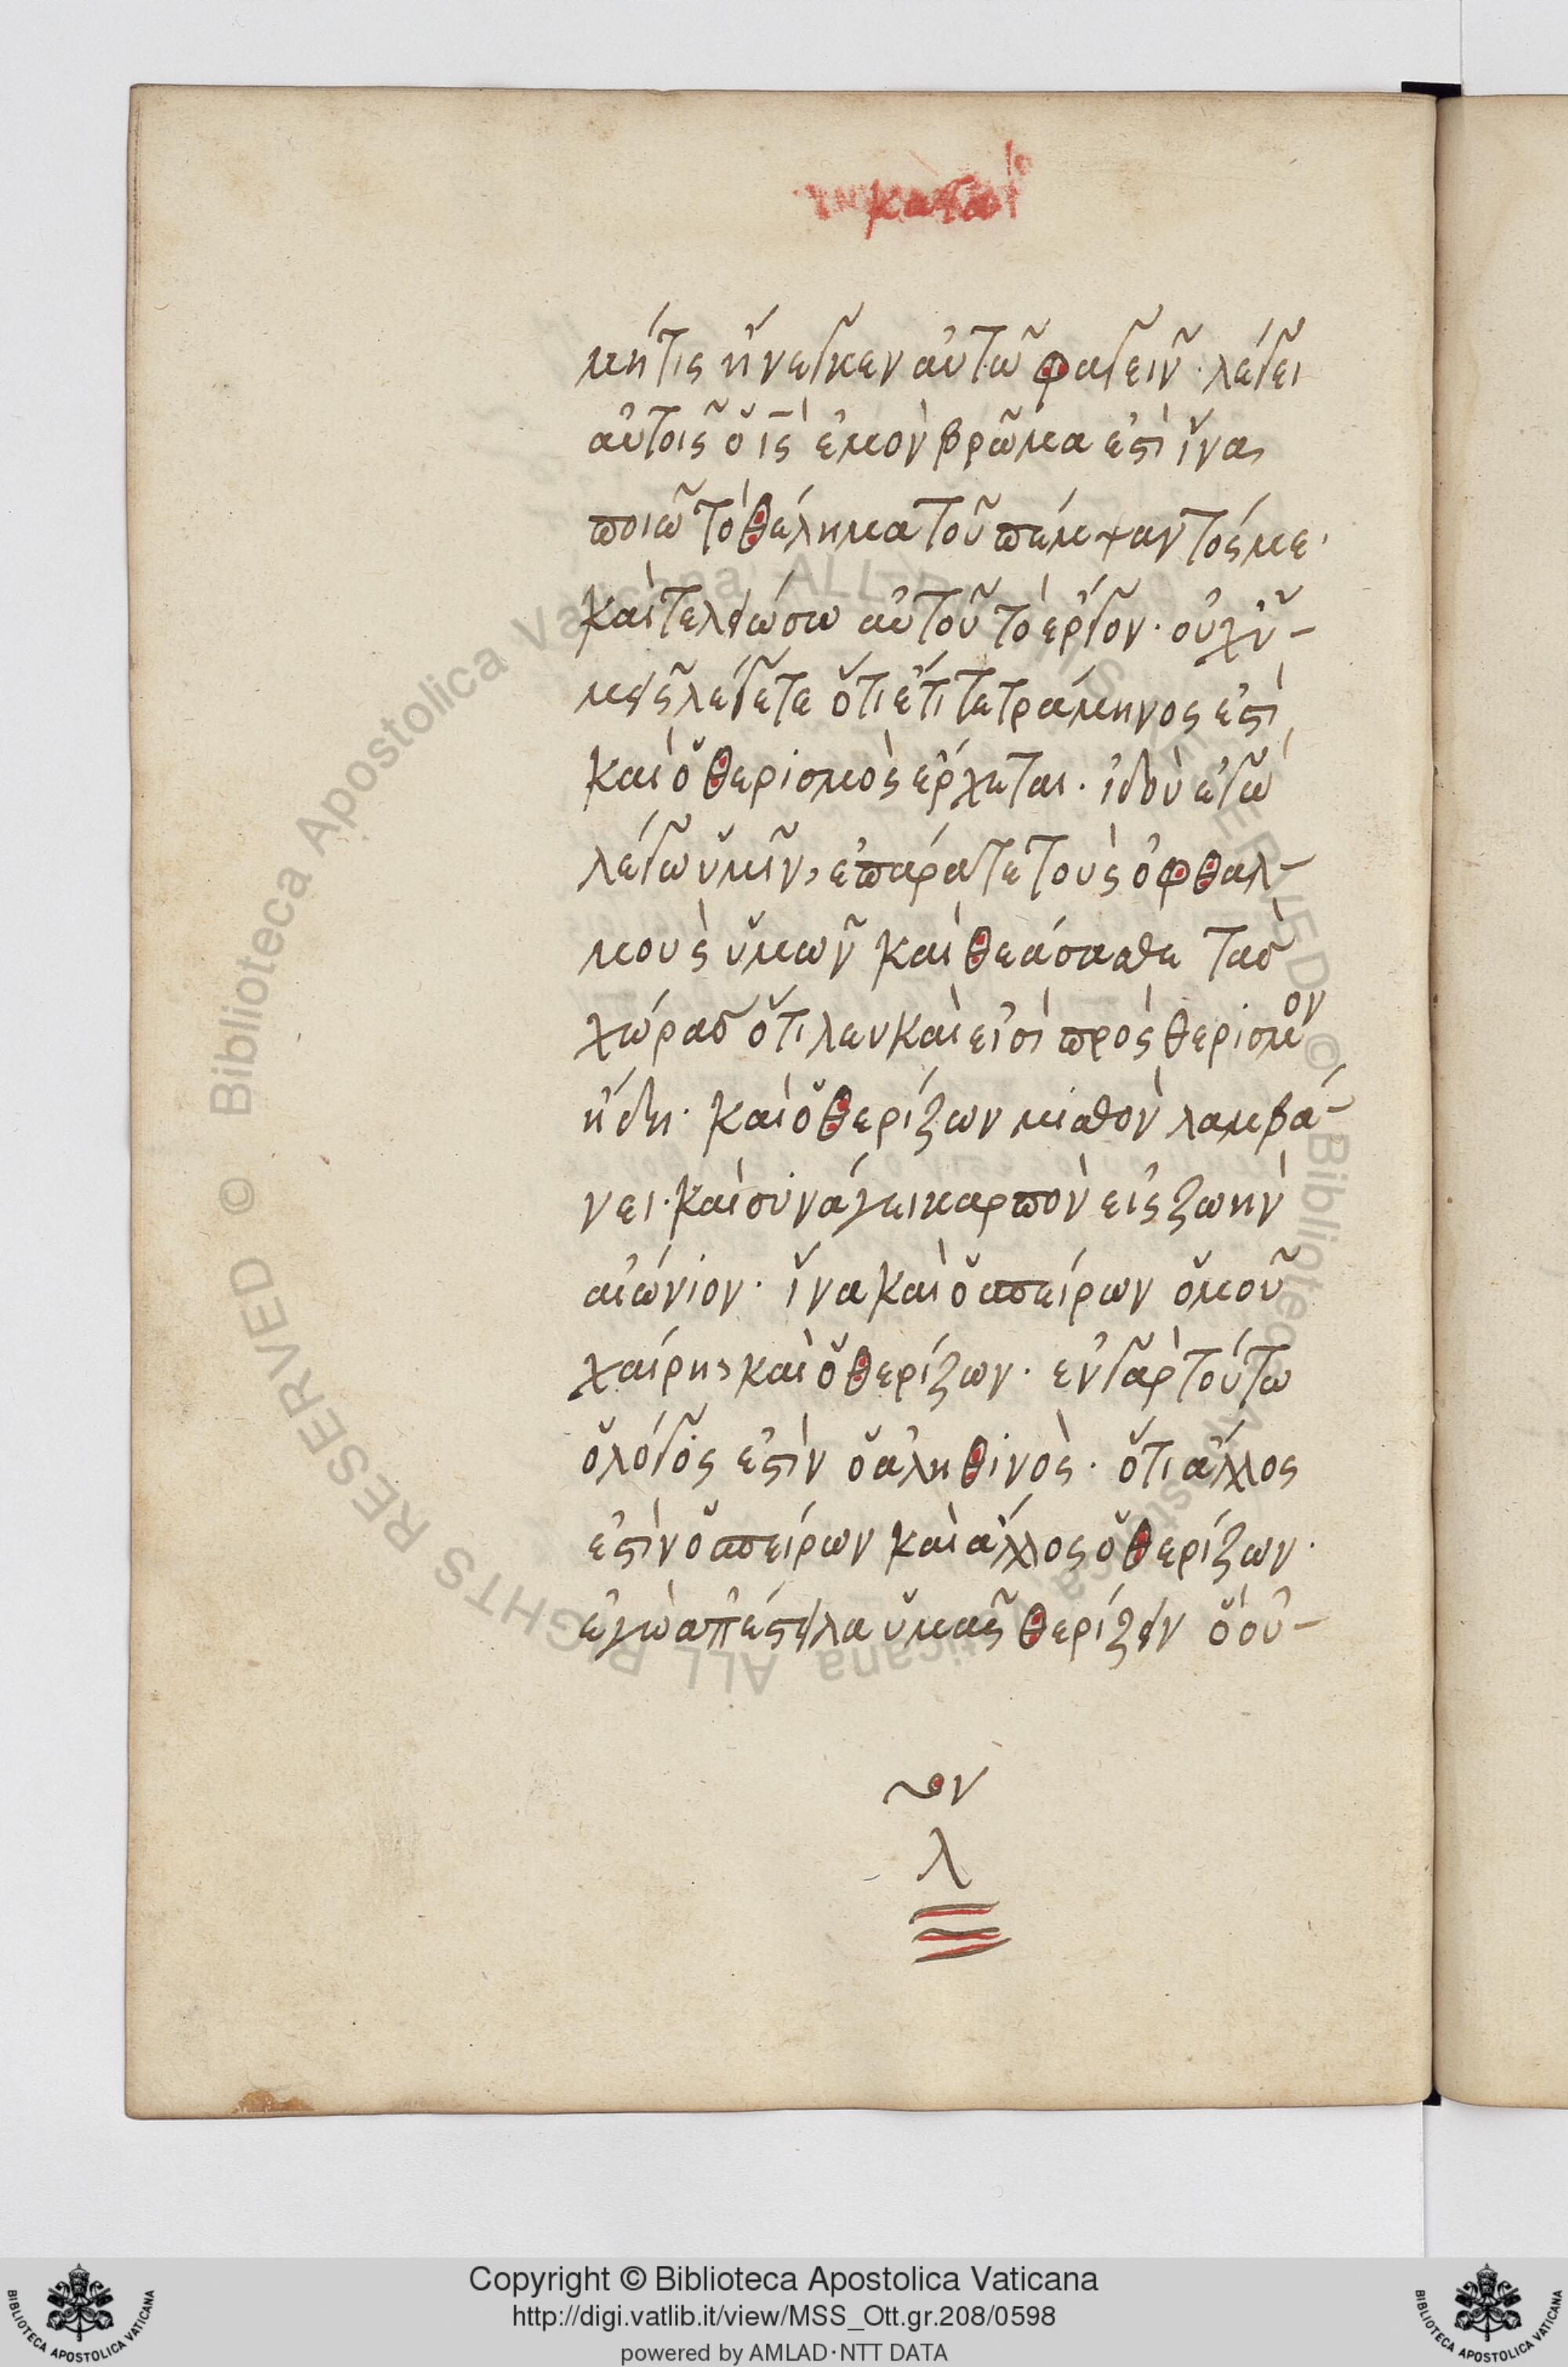 κατα
μήτις ἤνεγκεν αὐτῶ φαγεῖν· λέγει
αὐτοῖς ὁ ι̅ς̅ ἐμὸν βρῶμα ἐστὶ ἵνα
ποιῶ τὸ θέλημα τοῦ πέμψαντός με·
καὶ τελειώσω αὐτοῦ τὸ ἔργον· οὐχ ὑ-
μεῖς λέγετε ὅτι ἔτι τετράμηνος ἐστὶ
καὶ ὁ θερισμὸς ἔρχεται· ἰδοὺ ἐγὼ
λέγω ὑμῖν, ἐπάρατε τοὺς ὀφθαλ-
μοὺς ὑμῶν καὶ θεάσασθε τὰσ
χώρασ ὅτι λευκαὶ εἰσὶ πρὸς θερισμὸν
ἤδη· καὶ ὁ θερίζων μισθὸν λαμβά-
νει· καὶ συνάγει καρπὸν εἰς ζωὴν
αἰώνιον· ἵνα καὶ ὁ σπείρων ὁμοῦ
χαίρη, καὶ ὁ θερίζων· ἐν γὰρ τούτω
ὁ λόγος ἐστὶν ὁ ἀληθινὸς· ὅτι ἄλλος
ἐστὶν ὁ σπείρων καὶ ἄλλος ὁ θερίζων·
ἐγὼ ἀπέστειλα ὑμᾶς θερίζειν ὃ οὐ-
λ
Copyright © Biblioteca Apostolica Vaticana
http://digi.vatlib.it/view/MSS_Ott.gr.208/0598
powered by AMLAD·NTT DATA
BIBLIOTECA APOSTOLICA VATICANA
BIBLIOTECA APOSTOLICA VATICANA
© Biblioteca Apostolica Vaticana ALL RIGHTS RESERVED © Biblioteca Apostolica Vaticana ALL RIGHTS RESERVED